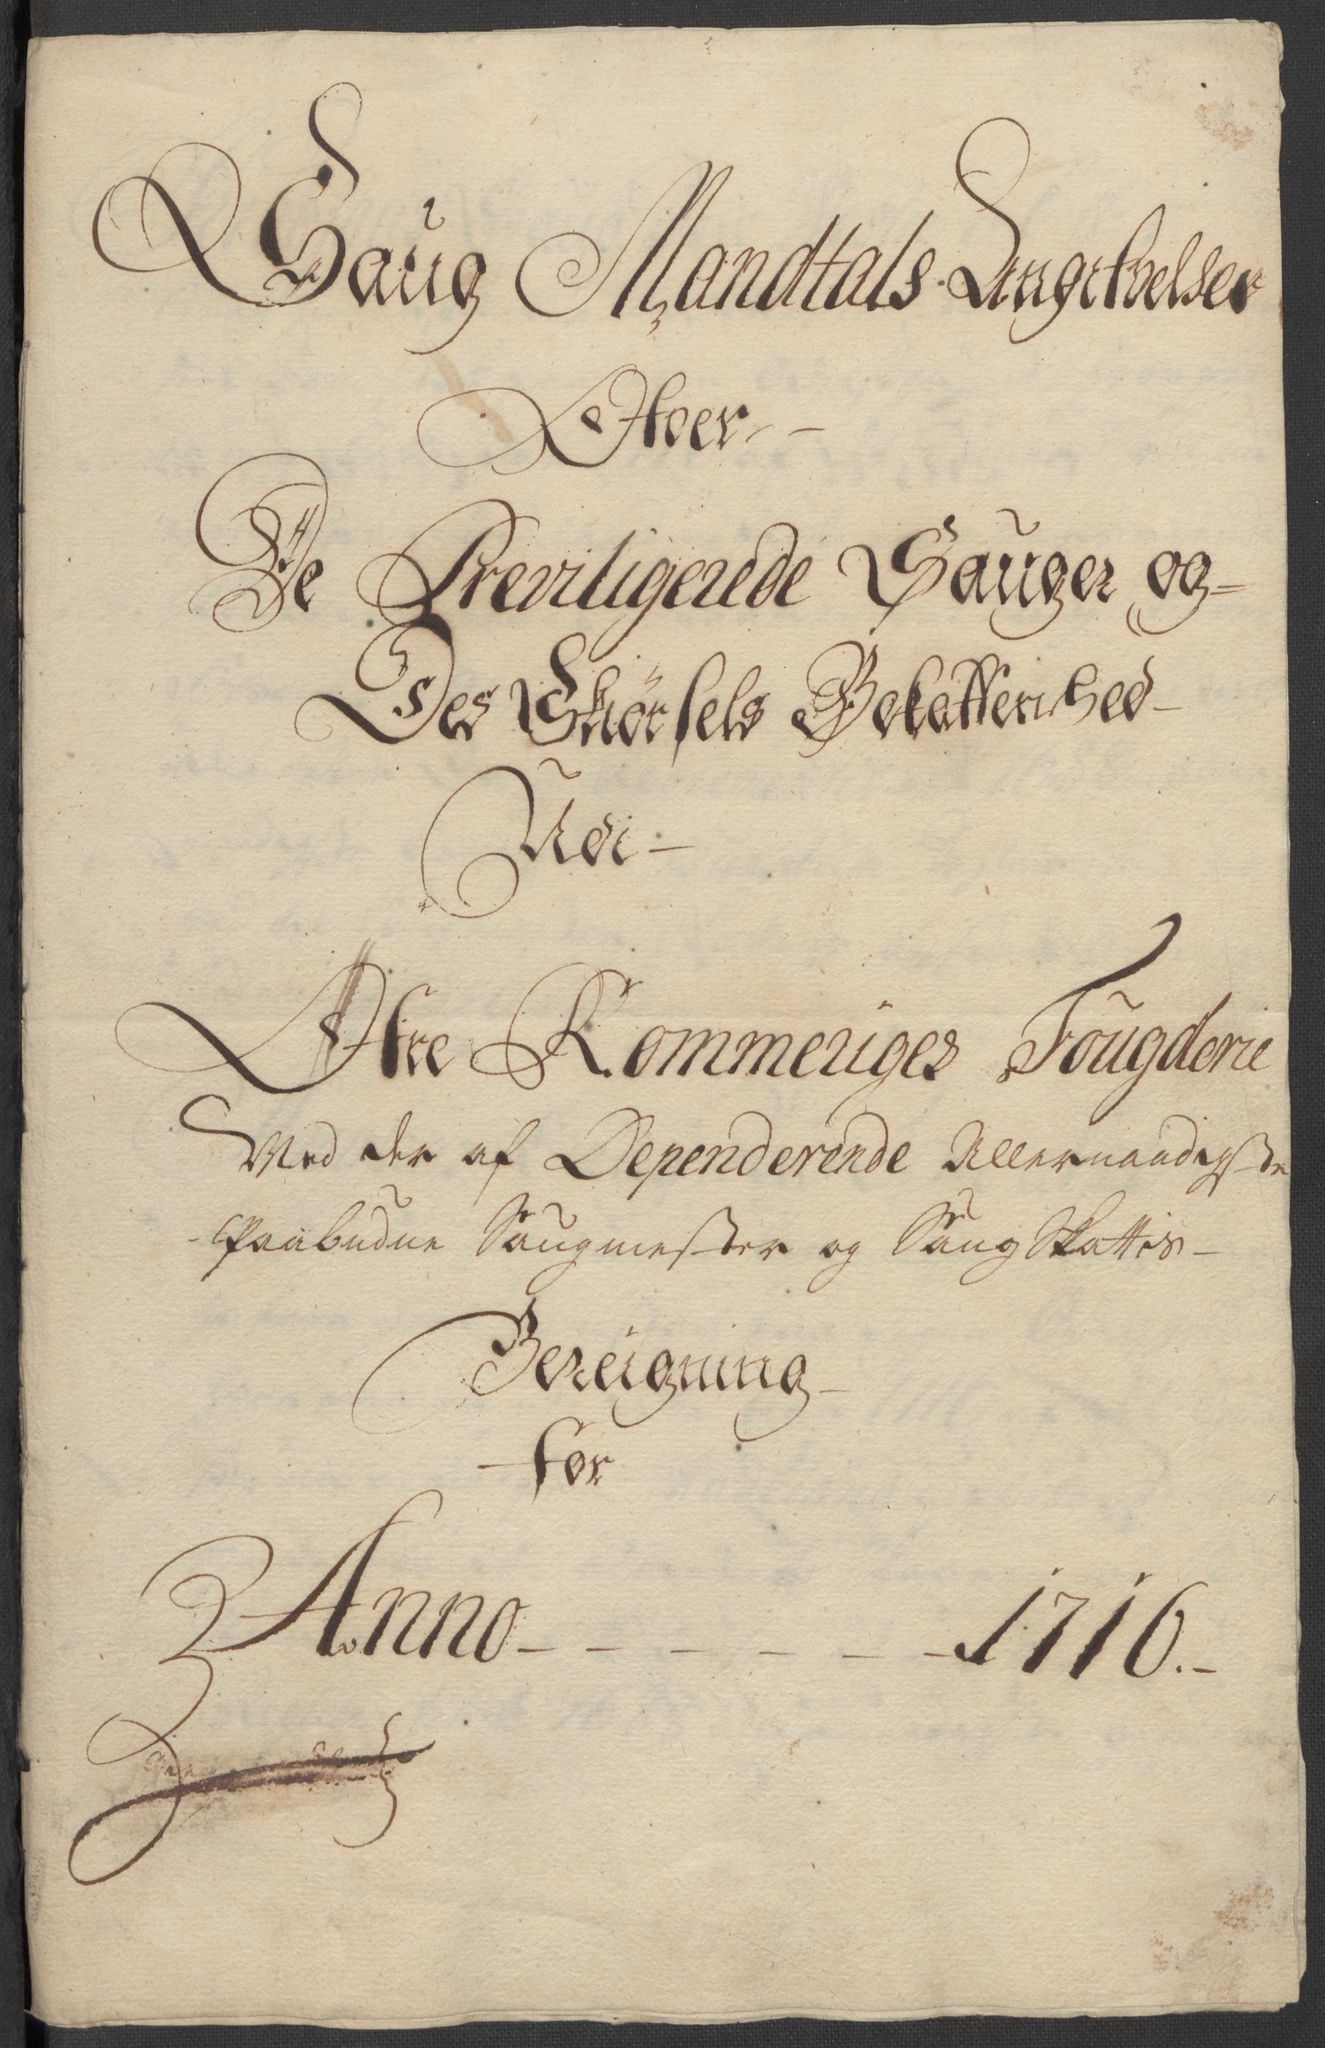 Saug Mandtals Angifvelser
Ofver
De Previligerede Sauger og
Des Skiørsels Beskaffenhed
Udi
Øfre Rommeriges Fougderie
Med der af Dependerende Allernaadigste
Paabudne Saugmester og Saug Skattes
Beregning
for
Anno 1716.